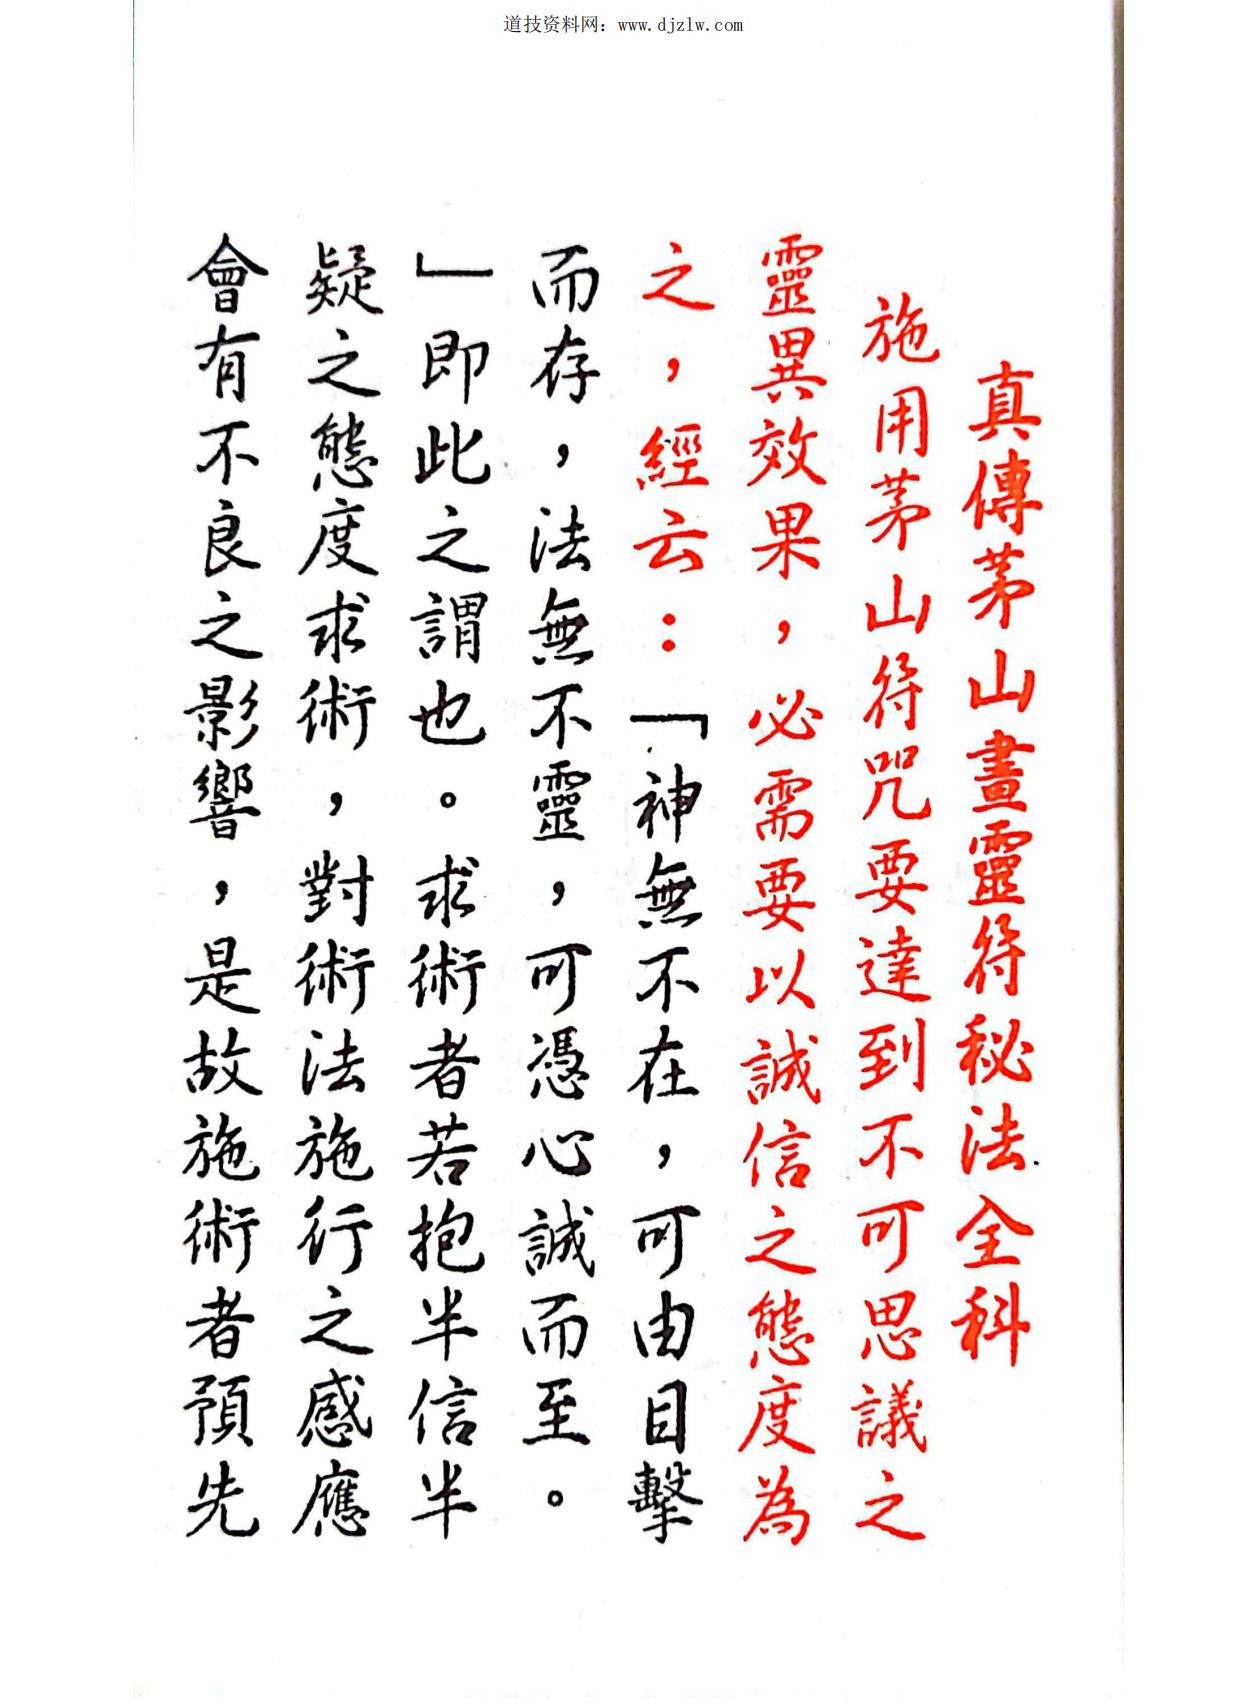 道技资料网：www.djzlw.com
真傳茅山畫靈符秘法全科
施用茅山符咒要達到不可思議之
靈異效果，必需要以誠信之態度為
之，經云：「神無不在，可由目擊
而存，法無不靈，可憑心誠而至。
」即此之謂也。求術者若抱半信半
疑之態度求術，對術法施行之感應
會有不良之影響，是故施術者預先